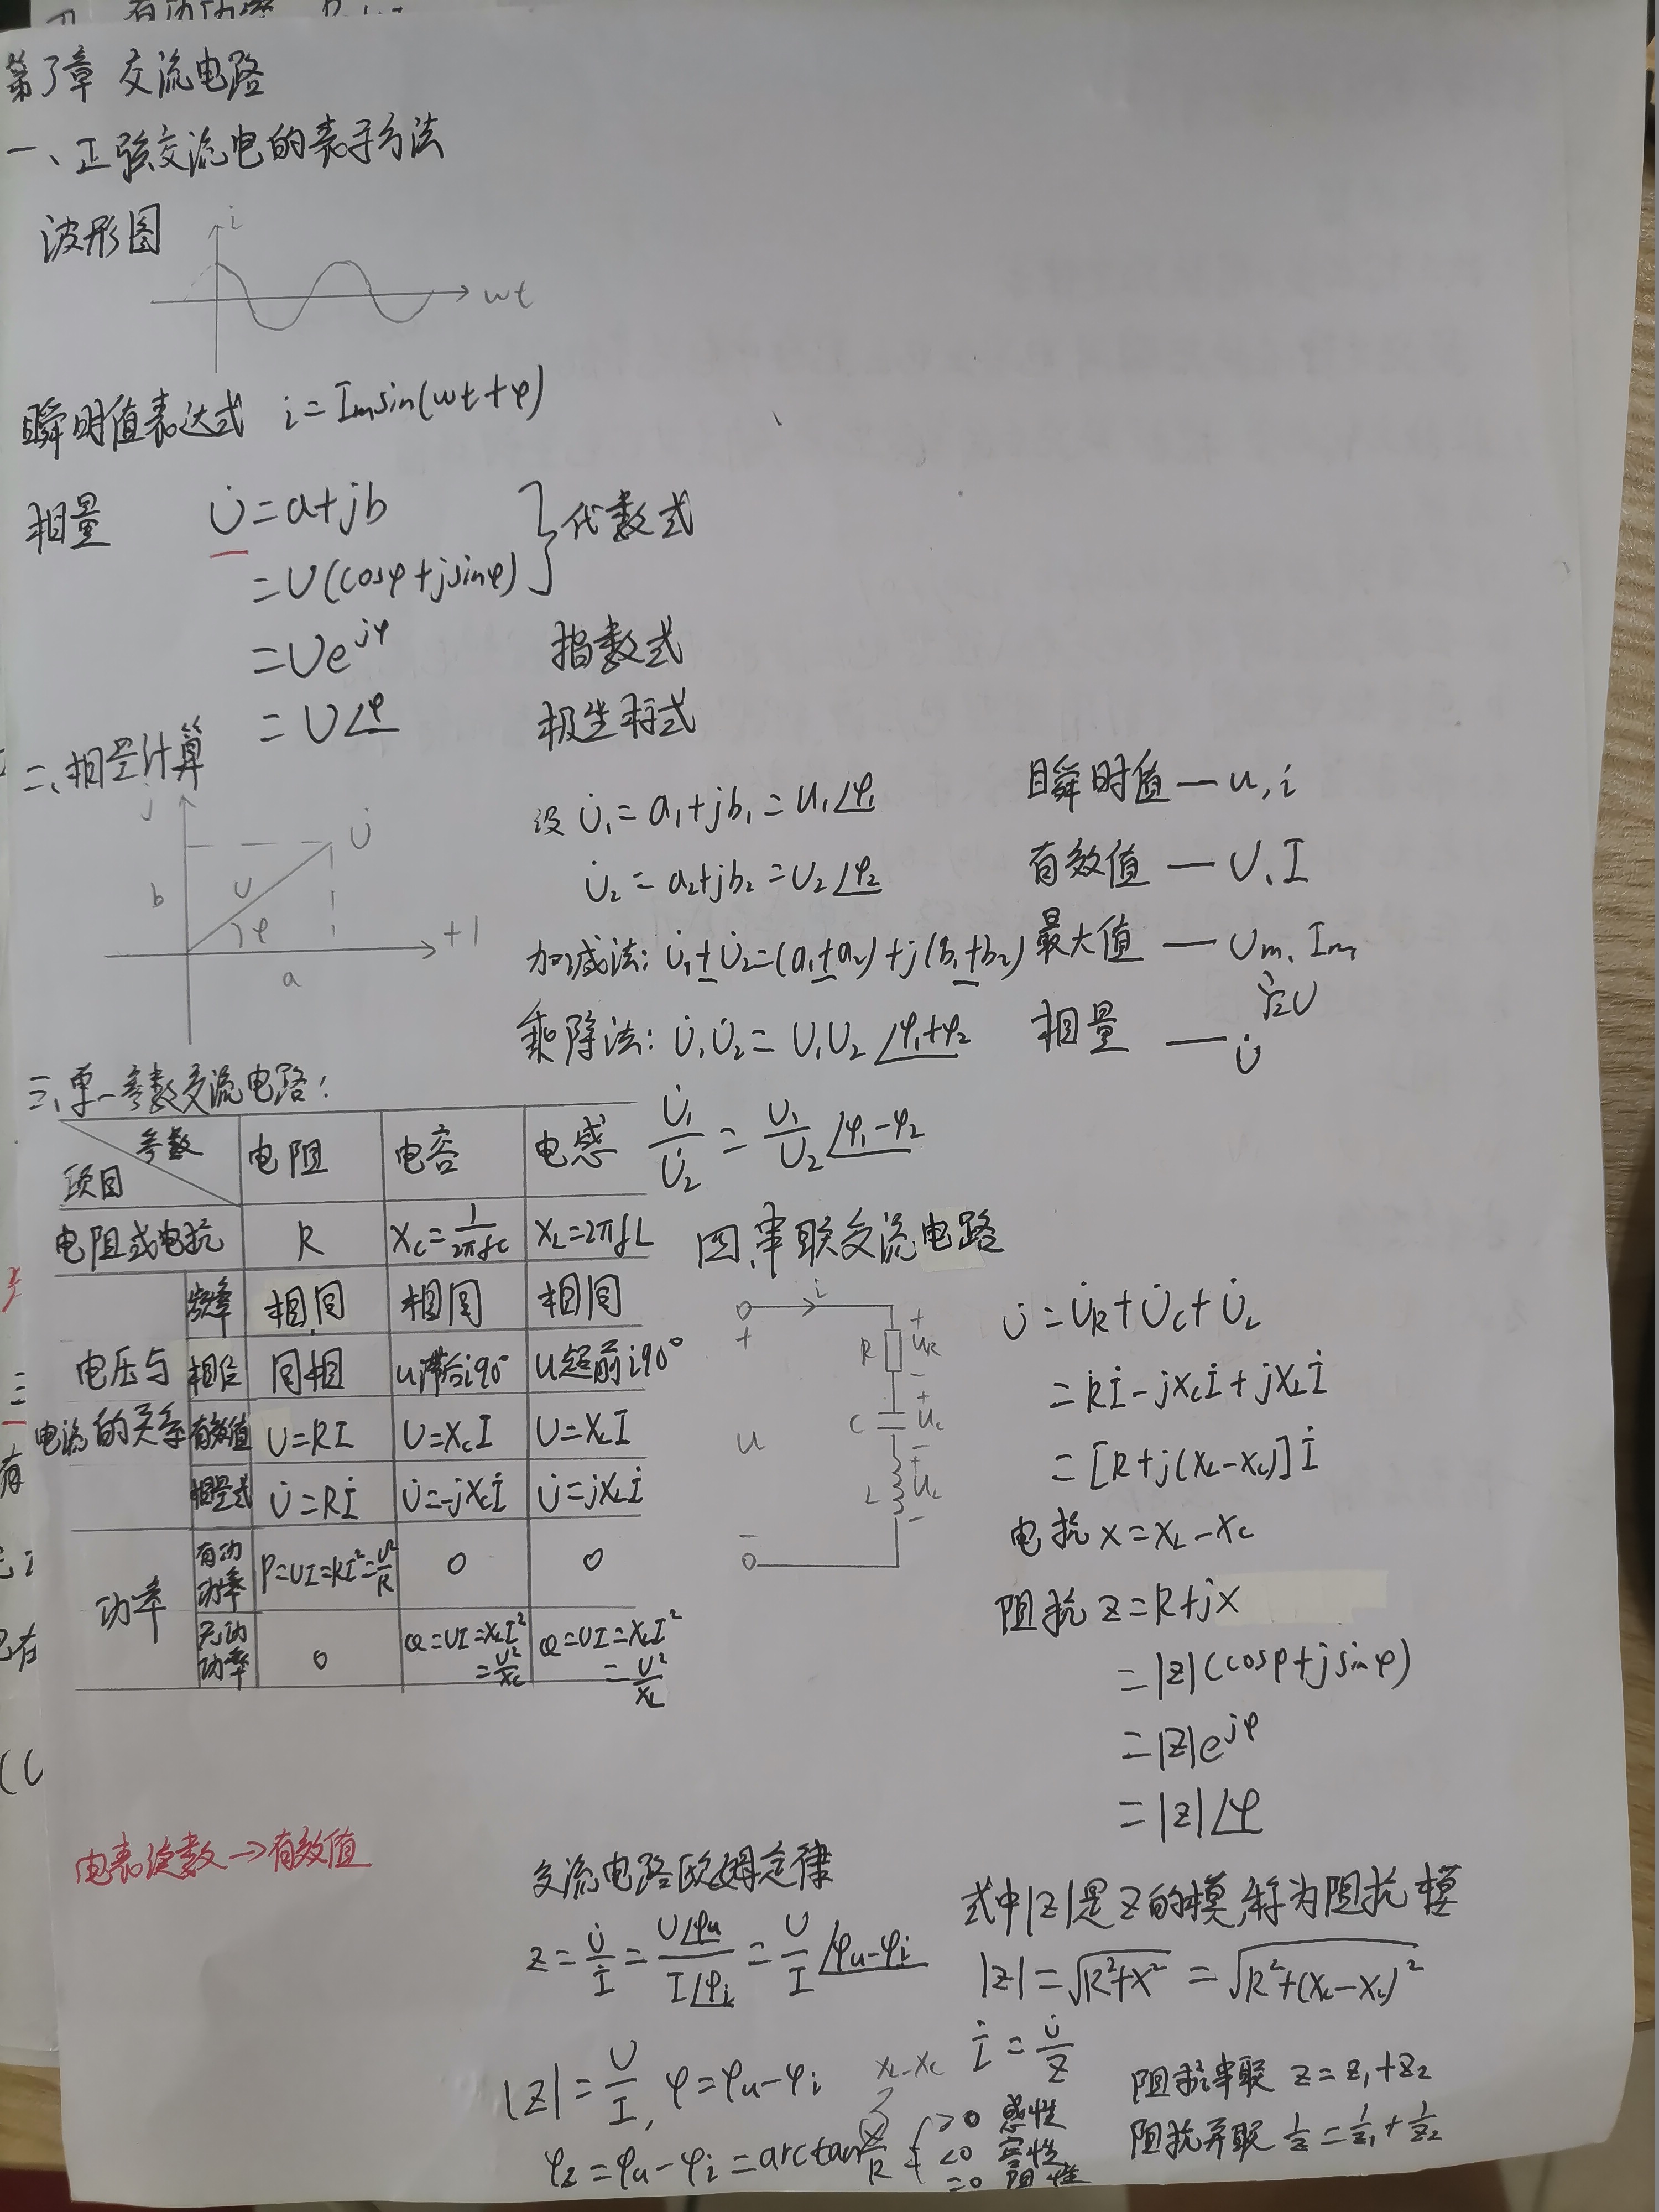 第3章 交流电路
一、正弦交流电的表示方法
波形图
i
wt
瞬时值表达式 i=Imsin(wt+φ)
相量 U̇=a+jb
=U(cosφ+jsinφ) } 代数式
=Ue^{jφ} 指数式
=U∠φ 极坐标式
二、相量计算
j
U̇
b
U
φ
+1
a
设 U̇₁=a₁+jb₁=U₁∠φ₁
U̇₂=a₂+jb₂=U₂∠φ₂
加减法: U̇₁±U̇₂=(a₁±a₂)+j(b₁±b₂)
乘除法: U̇₁U̇₂=U₁U₂∠φ₁+φ₂
U̇₁/U̇₂=U₁/U₂∠φ₁-φ₂
瞬时值—u,i
有效值—U、I
最大值—Um、Im
相量—U̇
三、单一参数交流电路:
参数 项目 电阻 电容 电感
电阻或电抗 R Xc=1/2πfC XL=2πfL
电压与电流的关系
频率 相同 相同 相同
相位 同相 u滞后i90° u超前i90°
有效值 U=RI U=XcI U=XLI
相量式 U̇=Rİ U̇=-jXcİ U̇=jXLİ
功率
有功功率 P=UI=RI²=U²/R 0 0
无功功率 0 Q=UI=XcI²=U²/Xc Q=UI=XLI²=U²/XL
四、串联交流电路
i
+
u
-
R + uR -
C + uc -
L + uL -
U̇=U̇R+U̇c+U̇L
=Rİ-jXcİ+jXLİ
=[R+j(XL-Xc)]İ
电抗 X=XL-Xc
阻抗 Z=R+jX
=|Z|(cosφ+jsinφ)
=|Z|e^{jφ}
=|Z|∠φ
式中|Z|是Z的模,称为阻抗模
|Z|=√(R²+X²)=√(R²+(XL-Xc)²)
电表读数→有效值
交流电路欧姆定律
Z=U̇/İ=U∠φu/I∠φi=U/I∠φu-φi
|Z|=U/I, φ=φu-φi
İ=U̇/Z
XL-Xc
φz=φu-φi=arctan X/R { >0 感性
<0 容性
=0 阻性
阻抗串联 Z=Z₁+Z₂
阻抗并联 1/Z=1/Z₁+1/Z₂